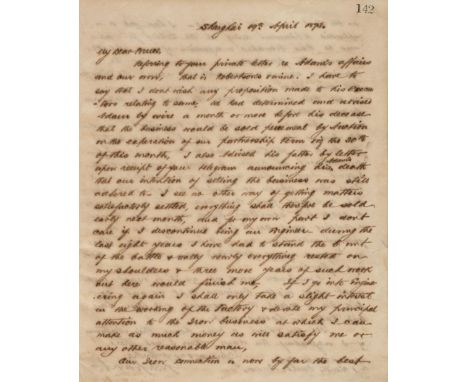 142
Shanghai 19th April 1878.
My Dear Bruce.
Referring to your private letter re Adam's affairs
and our own, that is Robertson's & mine. I have to
say that I dont wish any proposition made to his Execu
-tors relating to same, we had determined and advised
Adam by wire a month or more before his decease
that the business would be sold piecemeal by Auction
on the expiration of our partnership term viz the 30th
of this month, I also advised his father by letter
upon receipt of your telegram announcing his death
Adam's
that our intention of selling the business was still
adhered to. I see no other way of getting matters
satisfactorily settled, everything shall therefore be sold
early next month, and for my own part I dont
care if I discontinue being an Engineer during the
last eight years I have had to stand the brunt
of the battle & really nearly everything rested on
my shoulders & three more years of such work
out here would finish me, If I go into Engine
ering again I shall only take a slight interest
in the working of the Factory & devote my principal
attention to the Iron business at which I can
make as much money as will satisfy me or
any other reasonable man,
Our Iron connection is now by far the best